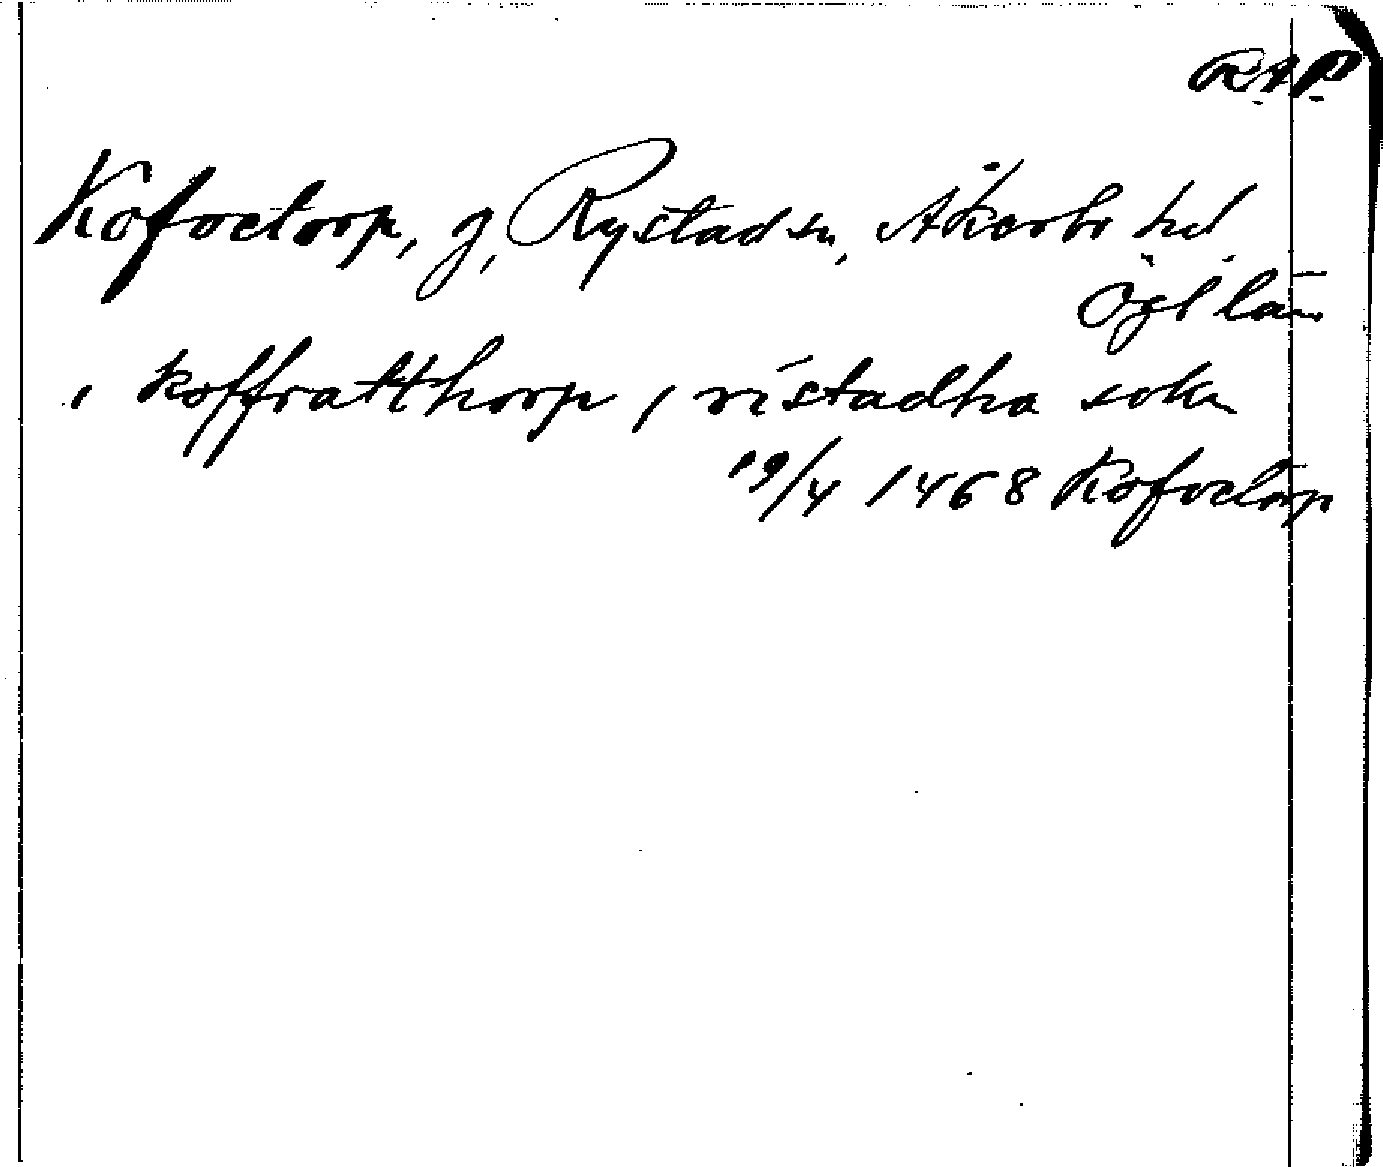 R.A.P.
Kofvetorp, g, Rystad sn, Åkerbo hd
Ögl län
, koffratthorp, ristadha sokn
19/4 1468 Kofvetorp